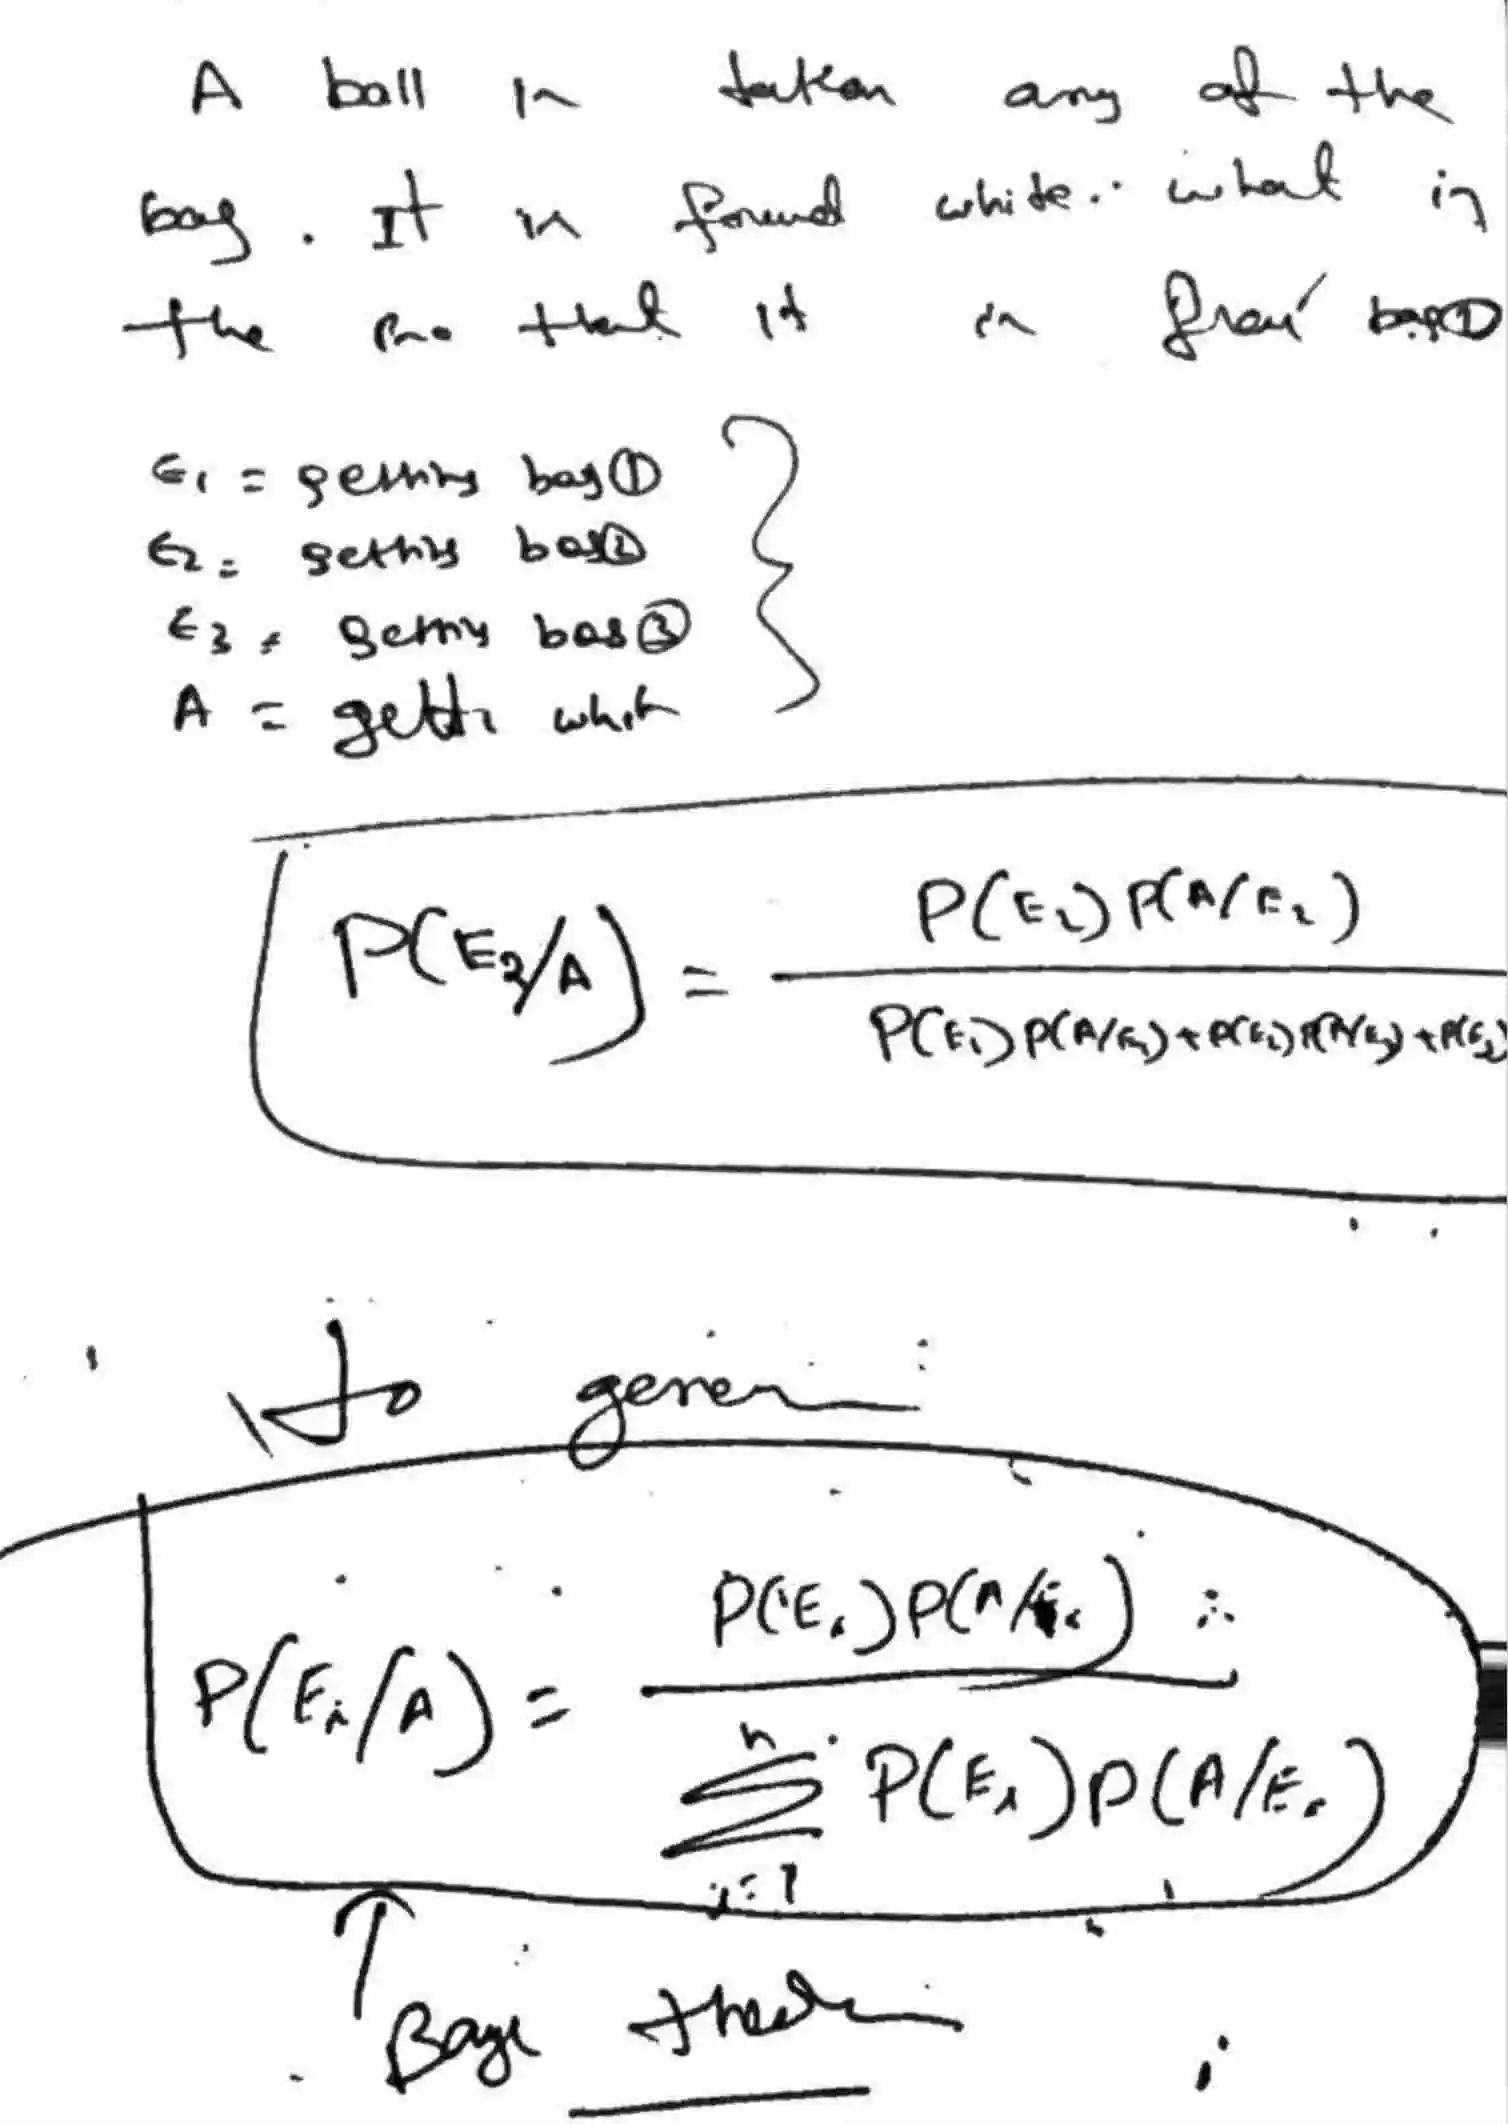 A ball is taken any of the
bag. It is found white. what is
the pro that it is from bag ①
E1 = getting bag ①
E2 = getting bag ②
E3 = getting bag ③
A = getti whit
P(E2/A) = P(E2) P(A/E2)
P(E1) P(A/E1) + P(E2) P(A/E2) + P(E3)
gener
P(Ei/A) = P(Ei) P(A/Ei)
n
∑ P(Ei) P(A/Ei)
i=1
Baye